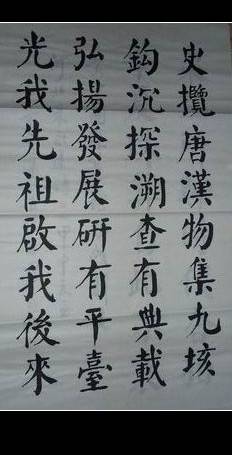 史攬唐漢物集九垓
鈎沉探溯查有典載
弘揚發展研有平臺
光我先祖啟我後來